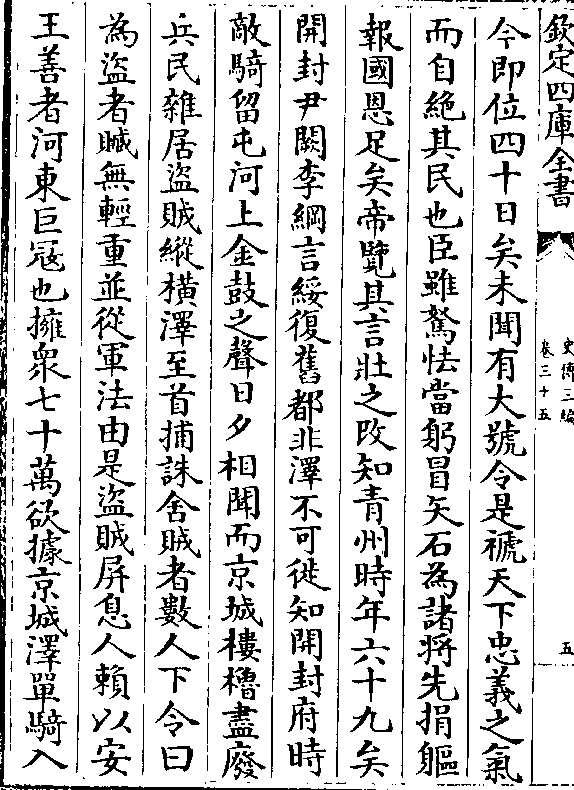 欽定四庫全書
史傳三編
卷三十五
五
今即位四十日矣未聞有大號令是褫天下忠義之氣
而自絕其民也臣雖駑怯當躬冒矢石為諸將先捐軀
報國恩足矣帝覽其言壯之改知青州時年六十九矣
開封尹闕李綱言綏復舊都非澤不可徙知開封府時
敵騎留屯河上金鼓之聲日夕相聞而京城樓櫓盡廢
兵民雜居盜賊縱橫澤至首捕誅舍賊者數人下令曰
為盜者贓無輕重並從軍法由是盜賊屏息人賴以安
王善者河東巨冦也擁衆七十萬欲據京城澤單騎入